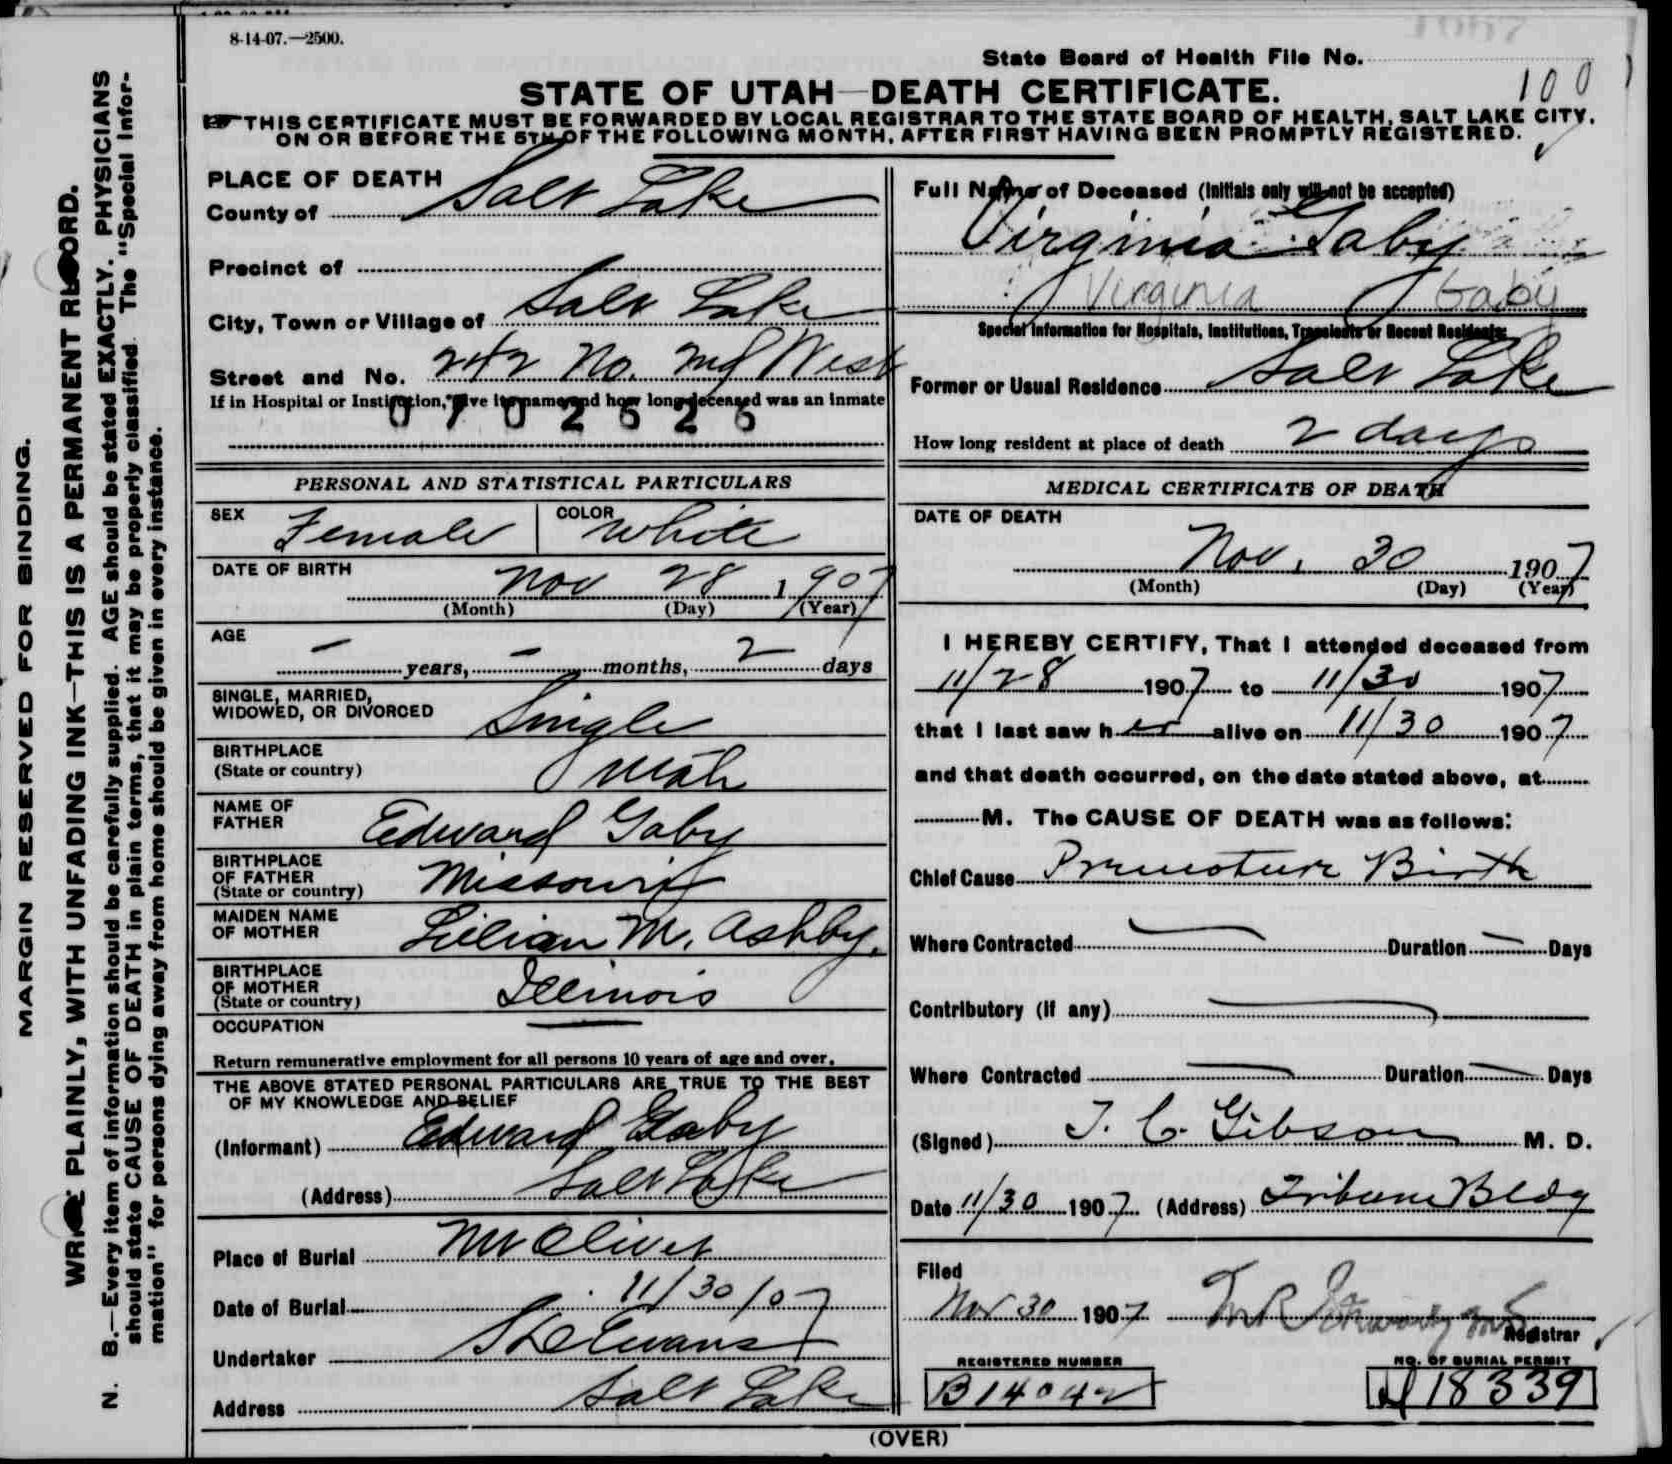 8-14-07.—2500.
State Board of Health File No.
100
STATE OF UTAH—DEATH CERTIFICATE.
THIS CERTIFICATE MUST BE FORWARDED BY LOCAL REGISTRAR TO THE STATE BOARD OF HEALTH, SALT LAKE CITY,
ON OR BEFORE THE 5TH OF THE FOLLOWING MONTH, AFTER FIRST HAVING BEEN PROMPTLY REGISTERED.
MARGIN RESERVED FOR BINDING.
WRITE PLAINLY, WITH UNFADING INK—THIS IS A PERMANENT RECORD.
N. B.—Every item of information should be carefully supplied. AGE should be stated EXACTLY. PHYSICIANS
should state CAUSE OF DEATH in plain terms, that it may be properly classified. The "Special Infor-
mation" for persons dying away from home should be given in every instance.
PLACE OF DEATH
County of Salt Lake
Precinct of
City, Town or Village of Salt Lake
Street and No. 242 No. 2nd West
If in Hospital or Institution, give its name and how long deceased was an inmate
0702626
PERSONAL AND STATISTICAL PARTICULARS
SEX Female COLOR White
DATE OF BIRTH Nov 28 1907
(Month) (Day) (Year)
AGE
— years, — months, 2 days
SINGLE, MARRIED,
WIDOWED, OR DIVORCED Single
BIRTHPLACE
(State or country) Utah
NAME OF
FATHER Edward Gaby
BIRTHPLACE
OF FATHER
(State or country) Missouri
MAIDEN NAME
OF MOTHER Lilian M. Ashby.
BIRTHPLACE
OF MOTHER
(State or country) Illinois
OCCUPATION —
Return remunerative employment for all persons 10 years of age and over.
THE ABOVE STATED PERSONAL PARTICULARS ARE TRUE TO THE BEST
OF MY KNOWLEDGE AND BELIEF
(Informant) Edward Gaby
(Address) Salt Lake
Place of Burial Mt Olivet
Date of Burial 11/30/07
Undertaker Evans
Address Salt Lake
Full Name of Deceased (Initials only will not be accepted)
Virginia Gaby
Virginia Gaby
Special Information for Hospitals, Institutions, Transients or Recent Residents:
Former or Usual Residence Salt Lake
How long resident at place of death 2 days
MEDICAL CERTIFICATE OF DEATH
DATE OF DEATH
Nov. 30 1907
(Month) (Day) (Year)
I HEREBY CERTIFY, That I attended deceased from
11/28 1907 to 11/30 1907
that I last saw her alive on 11/30 1907
and that death occurred, on the date stated above, at
M. The CAUSE OF DEATH was as follows:
Chief Cause Premature Birth
Where Contracted — Duration — Days
Contributory (if any) —
Where Contracted — Duration — Days
(Signed) T. C. Gibson M. D.
Date 11/30 1907 (Address) Tribune Bldg
Filed
Nov 30 1907
Registrar
REGISTERED NUMBER
B14042
NO. OF BURIAL PERMIT
18339
(OVER)